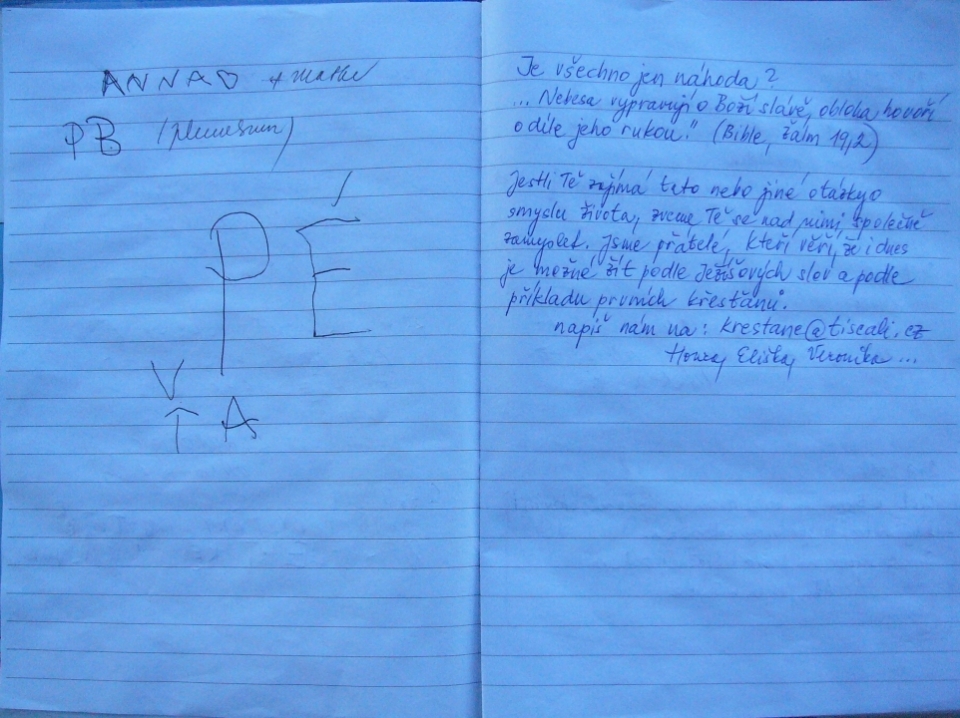 ANNA
PB
PÉ
V
A
Je všechno jen náhoda?
... Nebesa vypravují o Boží slávě, obloha hovoří
o díle jeho rukou." (Bible, žalm 19,2)
Jestli Tě zajímá tato nebo jiné otázky o
smyslu života, zveme Tě se nad nimi společně
zamyslet. Jsme přátelé, kteří věří, že i dnes
je možné žít podle Ježíšových slov a podle
příkladu prvních křesťanů.
napiš nám na: krestane@tiscali.cz
Honza, Eliška, Veronika ...